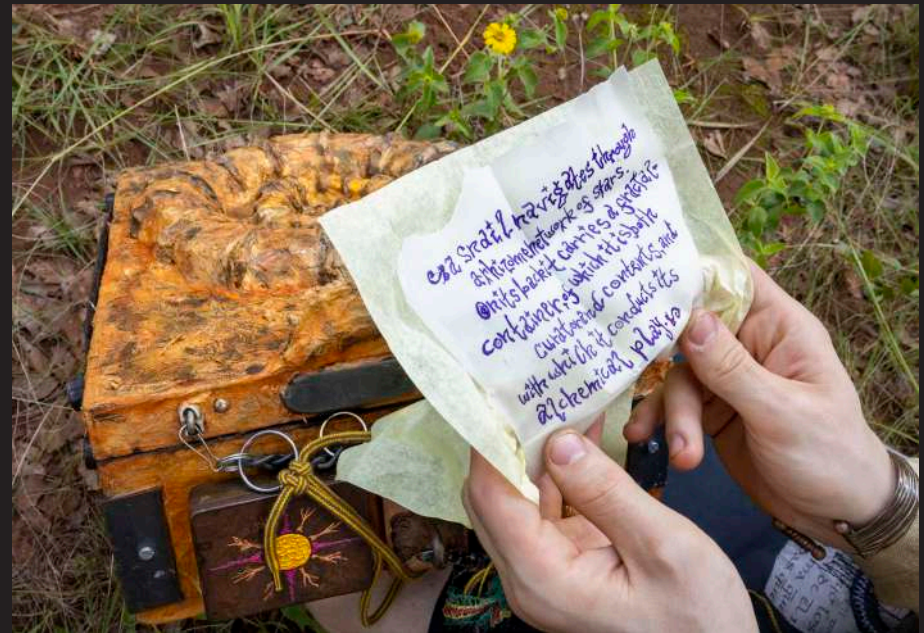 a snail navigates through
a rhizome network of stars.
On its back it carries a fractal
container, of which it is both
curator and contents, and
with which it conducts its
alchemical play: